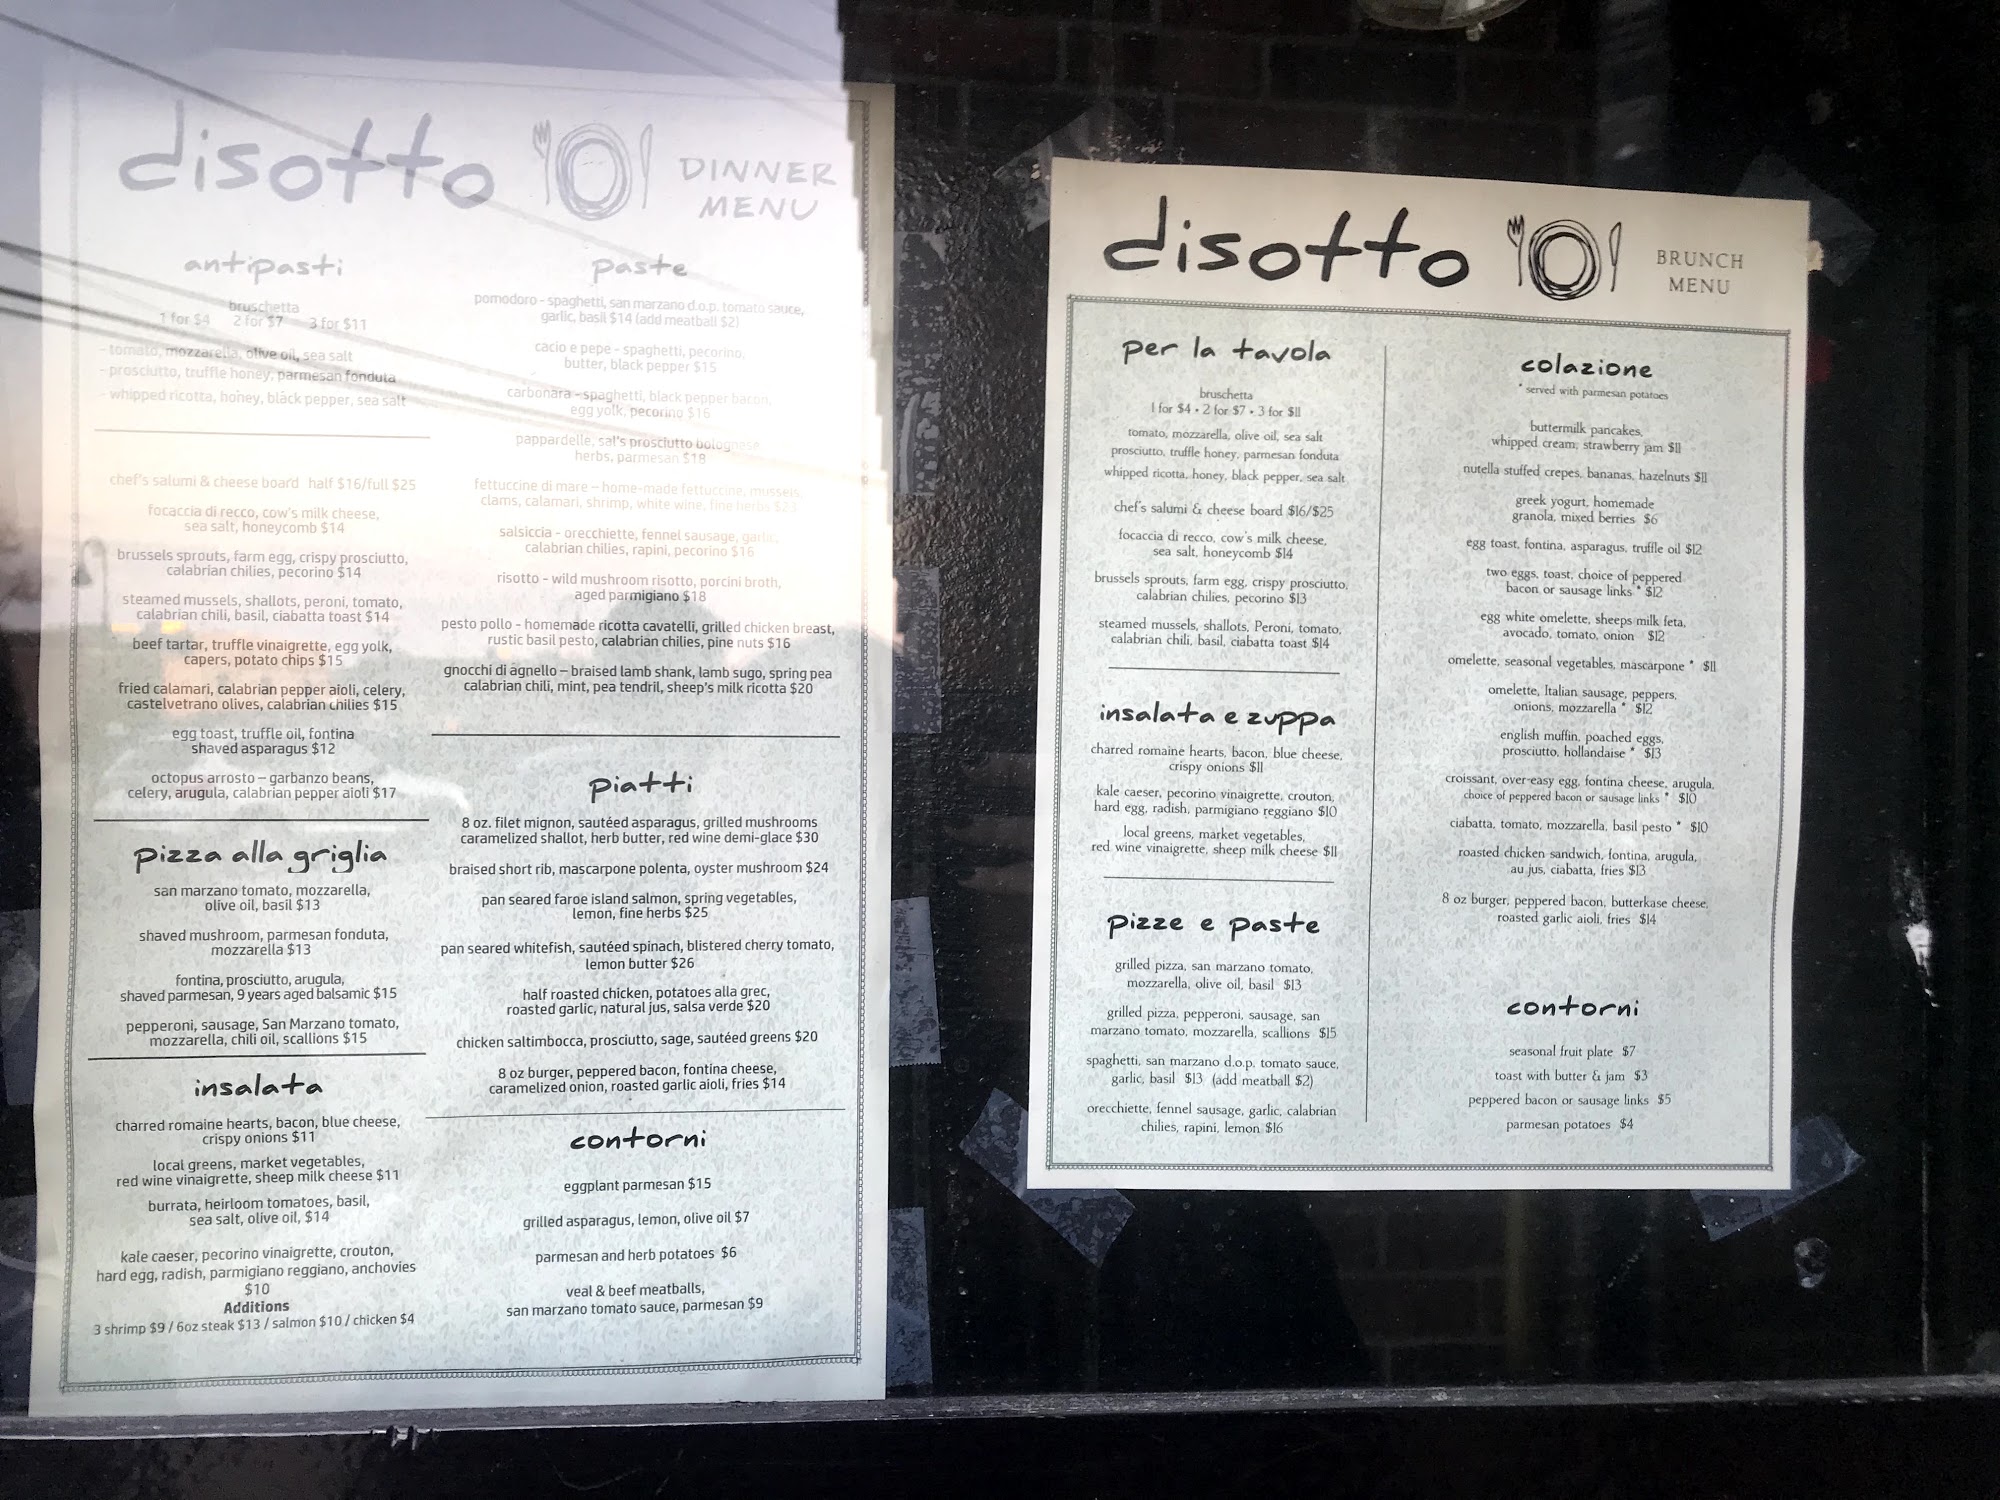 disotto
DINNER
MENU
antipasti
bruschetta
1 for $4 2 for $7 3 for $11
- tomato, mozzarella, olive oil, sea salt
- prosciutto, truffle honey, parmesan fonduta
- whipped ricotta, honey, black pepper, sea salt
chef's salumi & cheese board half $16/full $25
focaccia di recco, cow's milk cheese,
sea salt, honeycomb $14
brussels sprouts, farm egg, crispy prosciutto,
calabrian chilies, pecorino $14
steamed mussels, shallots, peroni, tomato,
calabrian chili, basil, ciabatta toast $14
beef tartar, truffle vinaigrette, egg yolk,
capers, potato chips $15
fried calamari, calabrian pepper aioli, celery,
castelvetrano olives, calabrian chilies $15
egg toast, truffle oil, fontina
shaved asparagus $12
octopus arrosto – garbanzo beans,
celery, arugula, calabrian pepper aioli $17
pizza alla griglia
san marzano tomato, mozzarella,
olive oil, basil $13
shaved mushroom, parmesan fonduta,
mozzarella $13
fontina, prosciutto, arugula,
shaved parmesan, 9 years aged balsamic $15
pepperoni, sausage, San Marzano tomato,
mozzarella, chili oil, scallions $15
insalata
charred romaine hearts, bacon, blue cheese,
crispy onions $11
local greens, market vegetables,
red wine vinaigrette, sheep milk cheese $11
burrata, heirloom tomatoes, basil,
sea salt, olive oil, $14
kale caeser, pecorino vinaigrette, crouton,
hard egg, radish, parmigiano reggiano, anchovies
$10
Additions
3 shrimp $9 / 6oz steak $13 / salmon $10 / chicken $4
paste
pomodoro - spaghetti, san marzano d.o.p. tomato sauce,
garlic, basil $14 (add meatball $2)
cacio e pepe - spaghetti, pecorino,
butter, black pepper $15
carbonara - spaghetti, black pepper bacon,
egg yolk, pecorino $16
pappardelle, sal's prosciutto bolognese,
herbs, parmesan $18
fettuccine di mare – home-made fettuccine, mussels,
clams, calamari, shrimp, white wine, fine herbs $23
salsiccia - orecchiette, fennel sausage, garlic,
calabrian chilies, rapini, pecorino $16
risotto - wild mushroom risotto, porcini broth,
aged parmigiano $18
pesto pollo - homemade ricotta cavatelli, grilled chicken breast,
rustic basil pesto, calabrian chilies, pine nuts $16
gnocchi di agnello – braised lamb shank, lamb sugo, spring pea
calabrian chili, mint, pea tendril, sheep's milk ricotta $20
piatti
8 oz. filet mignon, sautéed asparagus, grilled mushrooms
caramelized shallot, herb butter, red wine demi-glace $30
braised short rib, mascarpone polenta, oyster mushroom $24
pan seared faroe island salmon, spring vegetables,
lemon, fine herbs $25
pan seared whitefish, sautéed spinach, blistered cherry tomato,
lemon butter $26
half roasted chicken, potatoes alla grec,
roasted garlic, natural jus, salsa verde $20
chicken saltimbocca, prosciutto, sage, sautéed greens $20
8 oz burger, peppered bacon, fontina cheese,
caramelized onion, roasted garlic aioli, fries $14
contorni
eggplant parmesan $15
grilled asparagus, lemon, olive oil $7
parmesan and herb potatoes $6
veal & beef meatballs,
san marzano tomato sauce, parmesan $9
disotto
BRUNCH
MENU
per la tavola
bruschetta
1 for $4 • 2 for $7 • 3 for $11
tomato, mozzarella, olive oil, sea salt
prosciutto, truffle honey, parmesan fonduta
whipped ricotta, honey, black pepper, sea salt
chef's salumi & cheese board $16/$25
focaccia di recco, cow's milk cheese,
sea salt, honeycomb $14
brussels sprouts, farm egg, crispy prosciutto,
calabrian chilies, pecorino $13
steamed mussels, shallots, Peroni, tomato,
calabrian chili, basil, ciabatta toast $14
insalata e zuppa
charred romaine hearts, bacon, blue cheese,
crispy onions $11
kale caeser, pecorino vinaigrette, crouton,
hard egg, radish, parmigiano reggiano $10
local greens, market vegetables,
red wine vinaigrette, sheep milk cheese $11
pizze e paste
grilled pizza, san marzano tomato,
mozzarella, olive oil, basil $13
grilled pizza, pepperoni, sausage, san
marzano tomato, mozzarella, scallions $15
spaghetti, san marzano d.o.p. tomato sauce,
garlic, basil $13 (add meatball $2)
orecchiette, fennel sausage, garlic, calabrian
chilies, rapini, lemon $16
colazione
* served with parmesan potatoes
buttermilk pancakes,
whipped cream, strawberry jam $11
nutella stuffed crepes, bananas, hazelnuts $11
greek yogurt, homemade
granola, mixed berries $6
egg toast, fontina, asparagus, truffle oil $12
two eggs, toast, choice of peppered
bacon or sausage links * $12
egg white omelette, sheeps milk feta,
avocado, tomato, onion $12
omelette, seasonal vegetables, mascarpone * $11
omelette, Italian sausage, peppers,
onions, mozzarella * $12
english muffin, poached eggs,
prosciutto, hollandaise * $13
croissant, over-easy egg, fontina cheese, arugula,
choice of peppered bacon or sausage links * $10
ciabatta, tomato, mozzarella, basil pesto * $10
roasted chicken sandwich, fontina, arugula,
au jus, ciabatta, fries $13
8 oz burger, peppered bacon, butterkase cheese,
roasted garlic aioli, fries $14
contorni
seasonal fruit plate $7
toast with butter & jam $3
peppered bacon or sausage links $5
parmesan potatoes $4